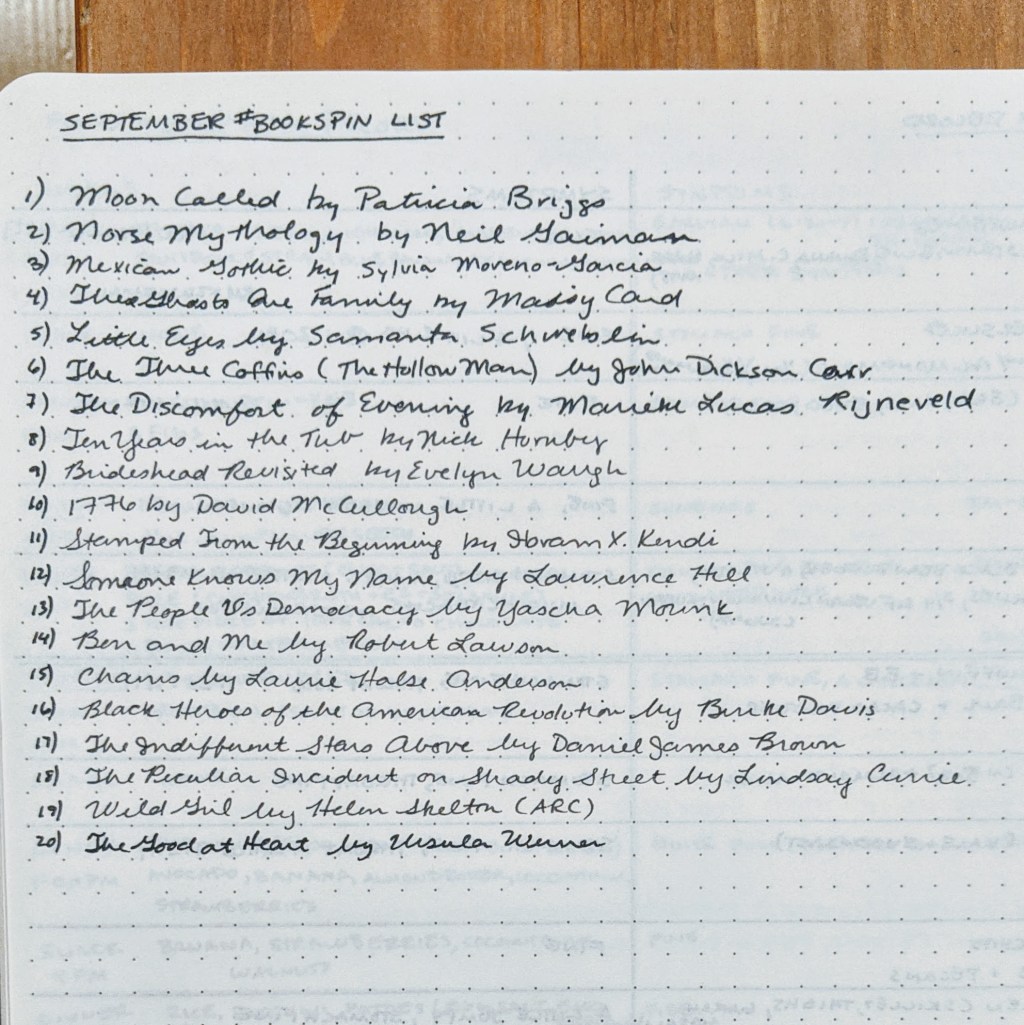 SEPTEMBER #BOOKSPIN LIST
1) Moon Called by Patricia Briggs
2) Norse Mythology by Neil Gaiman
3) Mexican Gothic by Sylvia Moreno-Garcia
4) These Ghosts Are Family by Maisy Card
5) Little Eyes by Samanta Schweblin
6) The Three Coffins (The Hollow Man) by John Dickson Carr
7) The Discomfort of Evening by Marieke Lucas Rijneveld
8) Ten Years in the Tub by Nick Hornby
9) Brideshead Revisited by Evelyn Waugh
10) 1776 by David McCullough
11) Stamped From the Beginning by Ibram X. Kendi
12) Someone Knows My Name by Lawrence Hill
13) The People Vs Democracy by Yascha Mounk
14) Ben and Me by Robert Lawson
15) Chains by Laurie Halse Anderson
16) Black Heroes of the American Revolution by Burke Davis
17) The Indifferent Stars Above by Daniel James Brown
18) The Peculiar Incident on Shady Street by Lindsay Currie
19) Wild Girl by Helen Skelton (ARC)
20) The Good at Heart by Ursula Werner